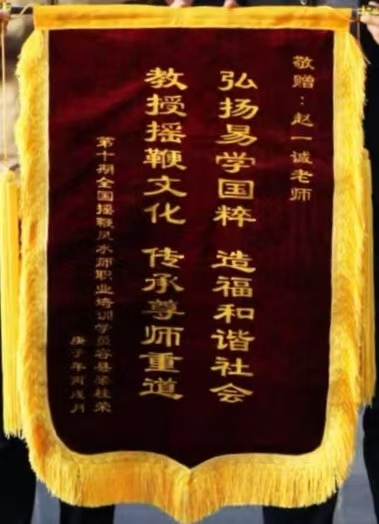 敬赠：赵一诚老师
弘扬易学国粹 造福和谐社会
教授摇鞭文化 传承尊师重道
第十期全国摇鞭风水师职业培训学员容县梁桂荣
庚子年丙戌月